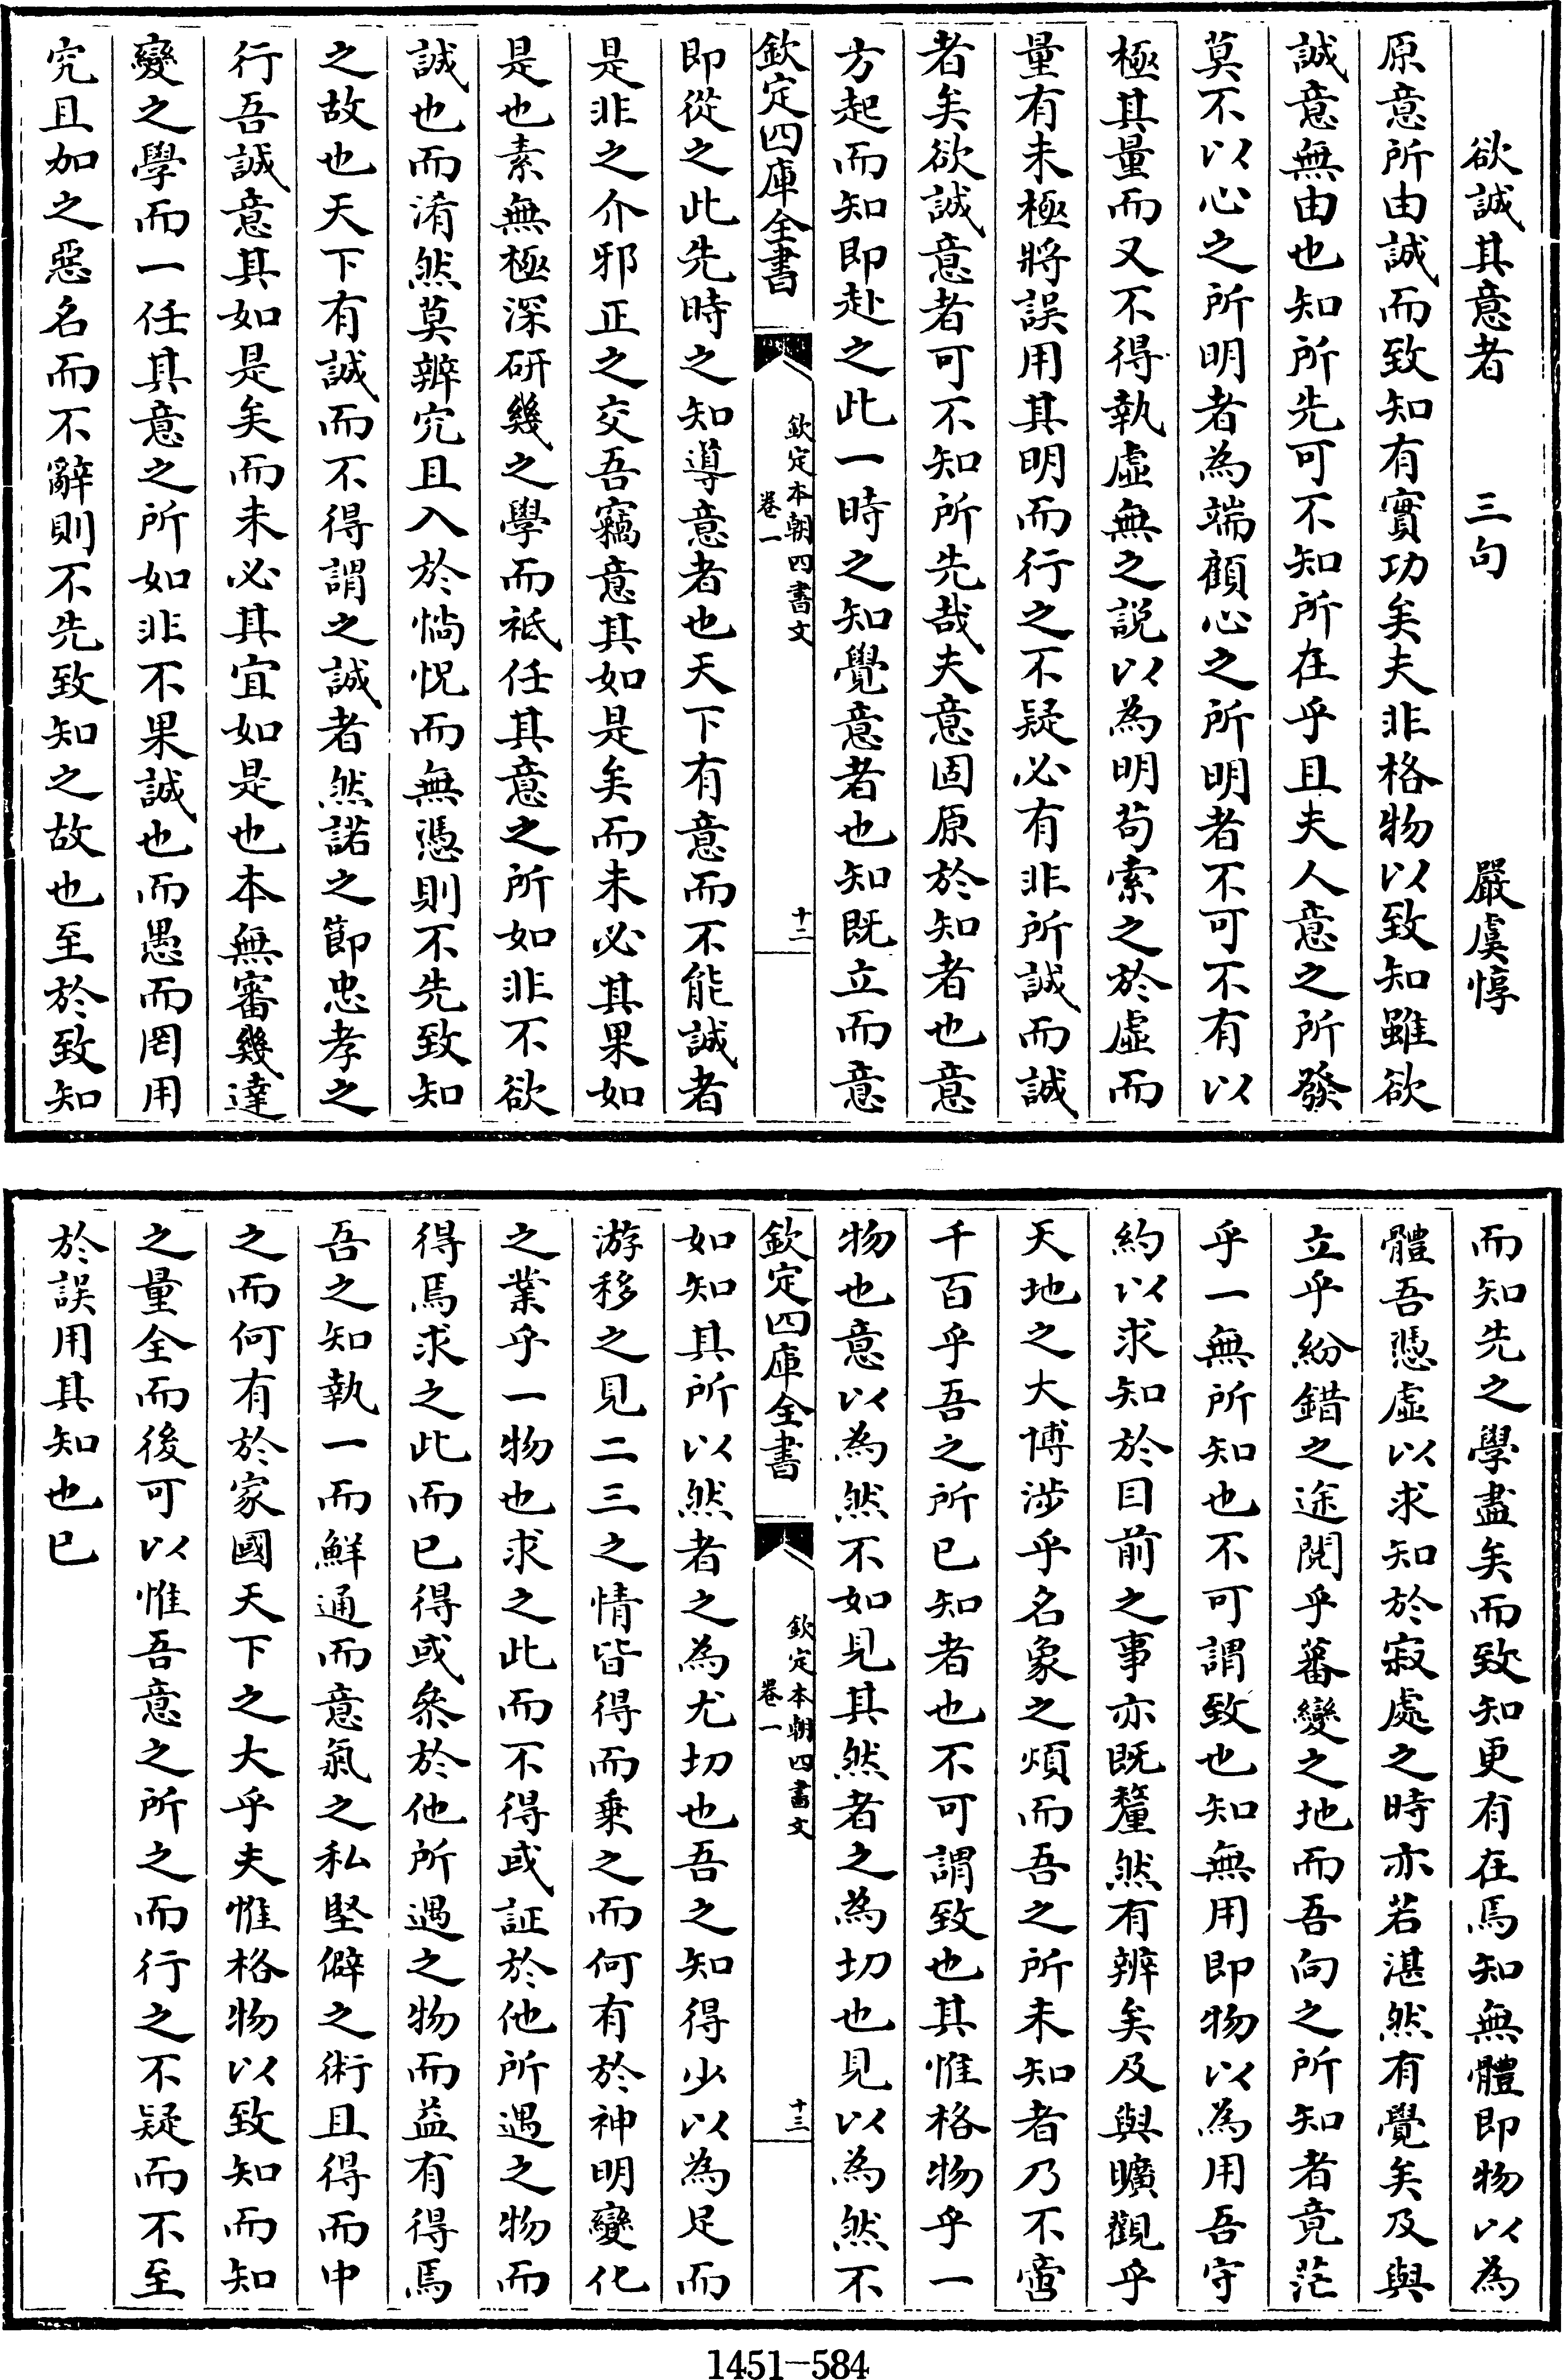 欲誠其意者　三句　嚴虞惇
原意所由誠而致知有實功矣夫非格物以致知雖欲
誠意無由也知所先可不知所在乎且夫人意之所發
莫不以心之所明者為端顧心之所明者不可不有以
極其量而又不得執虛無之説以為明茍索之於虛而
量有未極將誤用其明而行之不疑必有非所誠而誠
者矣欲誠意者可不知所先哉夫意固原於知者也意
方起而知即赴之此一時之知覺意者也知既立而意
欽定四庫全書　欽定本朝四書文　卷一　十二
即從之此先時之知導意者也天下有意而不能誠者
是非之介邪正之交吾竊意其如是矣而未必其果如
是也素無極深研幾之學而祗任其意之所如非不欲
誠也而淆然莫辨究且入於惝怳而無憑則不先致知
之故也天下有誠而不得謂之誠者然諾之節忠孝之
行吾誠意其如是矣而未必其宜如是也本無審幾達
變之學而一任其意之所如非不果誠也而愚而罔用
究且加之惡名而不辭則不先致知之故也至於致知
而知先之學盡矣而致知更有在焉知無體即物以為
體吾憑虛以求知於寂處之時亦若湛然有覺矣及與
立乎紛錯之途閱乎蕃變之地而吾向之所知者竟茫
乎一無所知也不可謂致也知無用即物以為用吾守
約以求知於目前之事亦既釐然有辨矣及與曠觀乎
天地之大博涉乎名象之煩而吾之所未知者乃不啻
千百乎吾之所已知者也不可謂致也其惟格物乎一
物也意以為然不如見其然者之為切也見以為然不
欽定四庫全書　欽定本朝四書文　卷一　十三
如知其所以然者之為尤切也吾之知得少以為足而
游移之見二三之情皆得而乘之而何有於神明變化
之業乎一物也求之此而不得或証於他所遇之物而
得焉求之此而已得或叅於他所遇之物而益有得焉
吾之知執一而鮮通而意氣之私堅僻之術且得而中
之而何有於家國天下之大乎夫惟格物以致知而知
之量全而後可以惟吾意之所之而行之不疑而不至
於誤用其知也已
1451-584